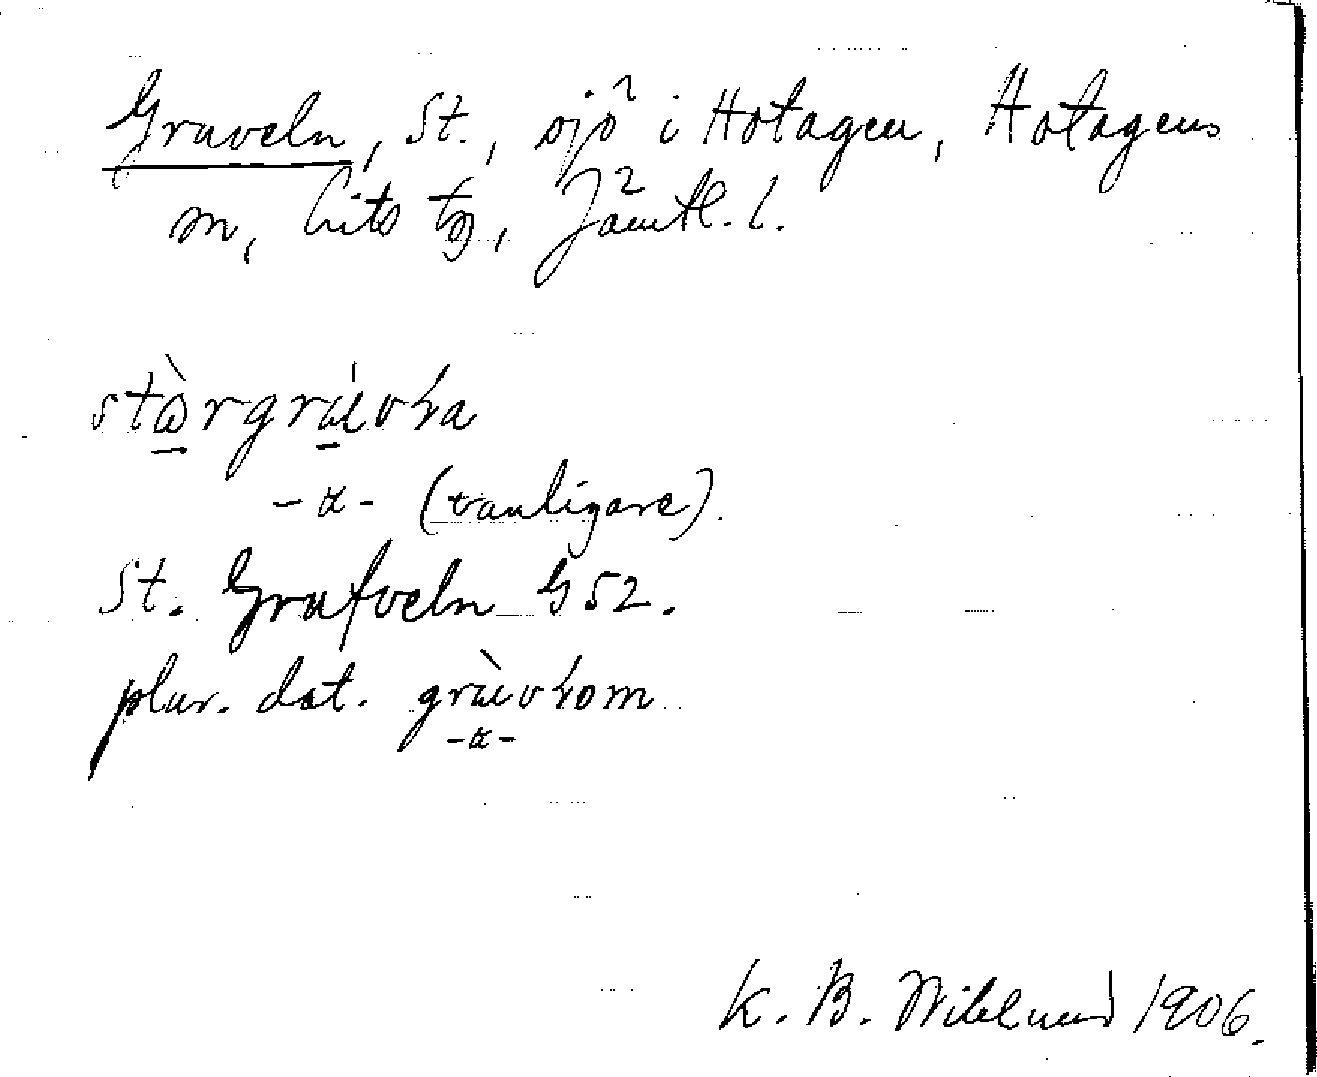 Graveln, St., sjö i Hotagen, Hotagens
m, Lits tg, Jämtl. l.
stὼrgrávɫa
-α- (vanligare).
St. Grafveln G 52.
plur. dat. gràvɫom
-α-
K. B. Wiklund 1906.